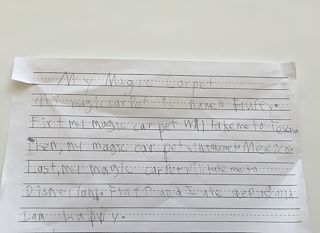 My Magic carpet
My magic carpet is named Fluffy.
First my magic car pet will take me to
Then, my magic car pet take me to Mexico.
Last, my magic carpet will take me to
Disneyland. and I are
I am happy.